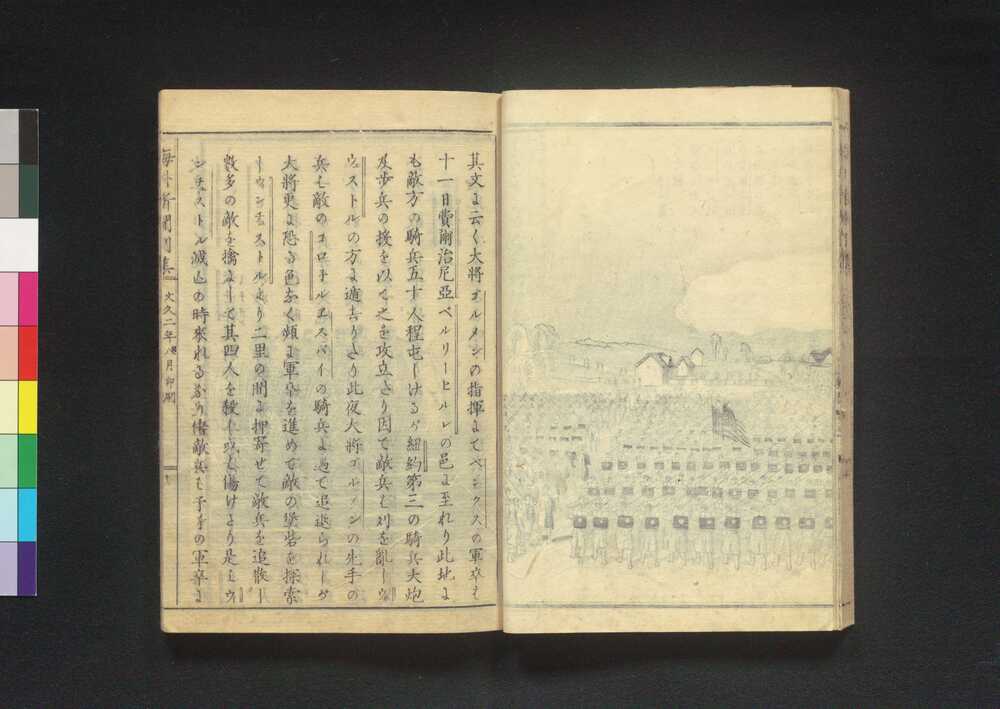 其文ニ云く大將ゴルメンの指揮にてベンクスの軍卒も
十一日費爾治尼亞ベルリーヒルルの邑ニ至れり此地に
も敵方の騎兵五十人程屯しけるが紐約第三の騎兵大炮
及歩兵の援を以て之を攻立たり因て敵兵も列を亂しウ
ヱストルの方に遁去りたり此夜大將ゴルメンの先手の
兵も敵のコロネルヱスバイの騎兵に遇て追返られしが
大將更に恐る色なく頻に軍卒を進めて敵の堡砦を探索
しウィンチェストルより二里の間に押寄せて敵兵を追散し
數多の敵を擒にして其四人を殺し或は傷けたり是もウ
ンチヱストル滅亡の時來れるなり敵兵も手の軍卒に
海外新聞別集
文久二年八月印刷